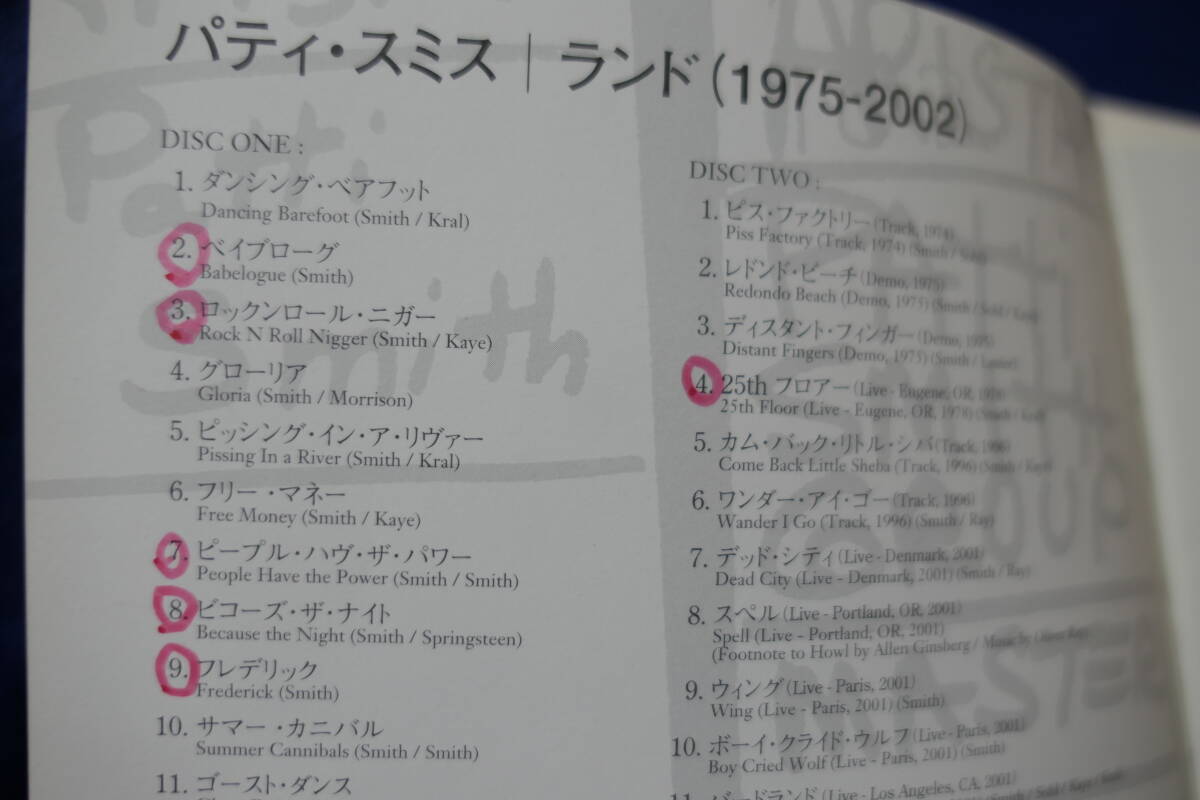 パティ・スミス｜ランド (1975-2002)
DISC ONE :
1. ダンシング・ベアフット
Dancing Barefoot (Smith / Kral)
2. ベイブローグ
Babelogue (Smith)
3. ロックンロール・ニガー
Rock N Roll Nigger (Smith / Kaye)
4. グローリア
Gloria (Smith / Morrison)
5. ピッシング・イン・ア・リヴァー
Pissing In a River (Smith / Kral)
6. フリー・マネー
Free Money (Smith / Kaye)
7. ピープル・ハヴ・ザ・パワー
People Have the Power (Smith / Smith)
8. ビコーズ・ザ・ナイト
Because the Night (Smith / Springsteen)
9. フレデリック
Frederick (Smith)
10. サマー・カニバル
Summer Cannibals (Smith / Smith)
11. ゴースト・ダンス
DISC TWO :
1. ピス・ファクトリー (Track, 1974)
Piss Factory (Track, 1974) (Smith / Sohl)
2. レドンド・ビーチ (Demo, 1975)
Redondo Beach (Demo, 1975) (Smith / Sohl / Kaye)
3. ディスタント・フィンガー (Demo, 1975)
Distant Fingers (Demo, 1975) (Smith / Lanier)
4. 25th フロアー (Live - Eugene, OR, 1978)
25th Floor (Live - Eugene, OR, 1978) (Smith / Kral)
5. カム・バック・リトル・シバ (Track, 1996)
Come Back Little Sheba (Track, 1996) (Smith / Kaye)
6. ワンダー・アイ・ゴー (Track, 1996)
Wander I Go (Track, 1996) (Smith / Ray)
7. デッド・シティ (Live - Denmark, 2001)
Dead City (Live - Denmark, 2001) (Smith / Ray)
8. スペル (Live - Portland, OR, 2001)
Spell (Live - Portland, OR, 2001)
(Footnote to Howl by Allen Ginsberg / Music by Oliver Ray)
9. ウィング (Live - Paris, 2001)
Wing (Live - Paris, 2001) (Smith)
10. ボーイ・クライド・ウルフ (Live - Paris, 2001)
Boy Cried Wolf (Live - Paris, 2001) (Smith)
11. バードランド (Live - Los Angeles, CA, 2001)
Patti
Smith